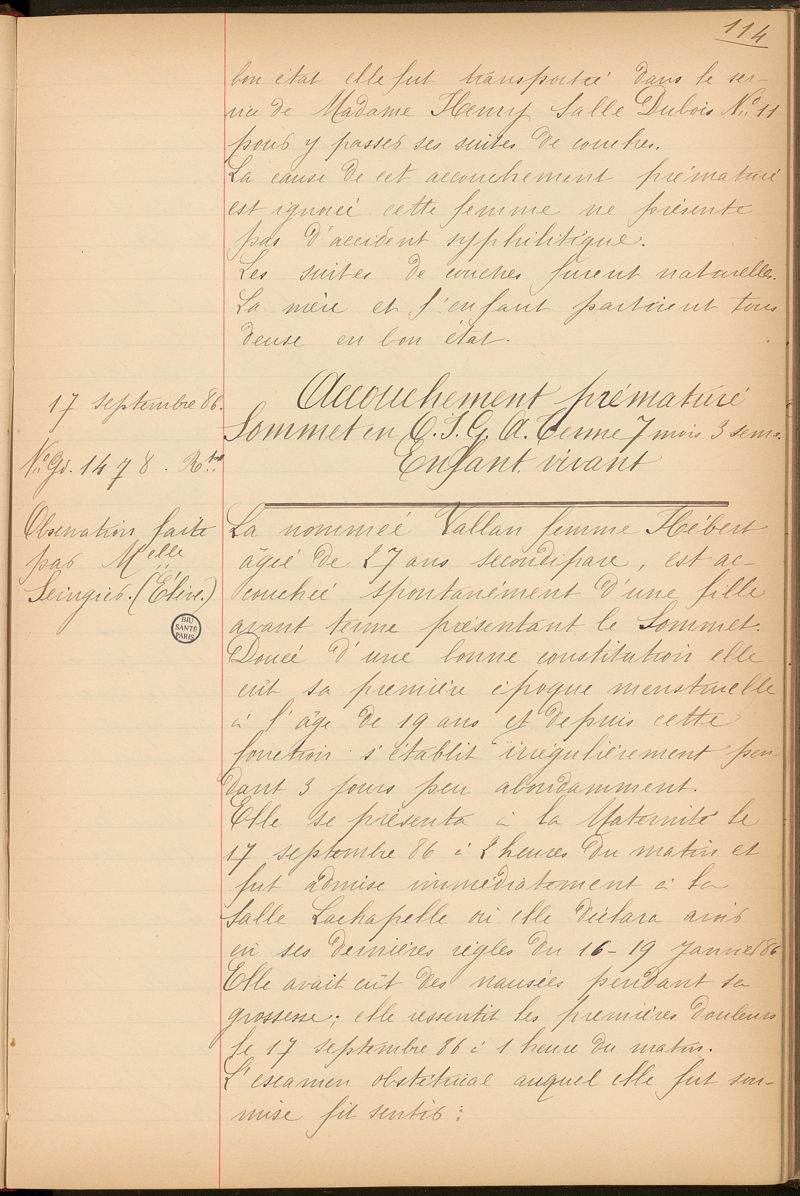 114
bon état elle fut transportée dans le ser-
vice de Madame Henry Salle Dubois No 11
pour y passer ses suites de couches.
La cause de cet accouchement prématuré
est ignorée cette femme ne présente
pas d'accident syphilitique.
Les suites de couches furent naturelles.
La mère et l'enfant partirent tous
deux en bon état.
17 septembre 86.
Accouchement prématuré
Sommet en O.I.G.A. Terme 7 mois 3 sem.
No Gd. 1478. Rt
Enfant vivant
Observation faite
par Melle
Seingier. (Élève.)
BIU
SANTÉ
PARIS
La nommée Vallan femme Hébert
âgée de 27 ans secondipare, est ac-
couchée spontanément d'une fille
avant terme présentant le Sommet.
Douée d'une bonne constitution elle
eût sa première époque menstruelle
à l'âge de 19 ans et depuis cette
fonction s'établit irrégulièrement pen-
dant 3 jours peu abondamment.
Elle se présenta à la Maternité le
17 septembre 86 à 2 heures du matin et
fut admise immédiatement à la
Salle Lachapelle où elle déclara avoir
eu ses dernières règles du 16-19 Janvier 86
Elle avait eût des nausées pendant sa
grossesse; elle ressentit les premières douleurs
le 17 septembre 86 à 1 heure du matin.
L'examen obstétrical auquel elle fut sou-
mise fit sentir: